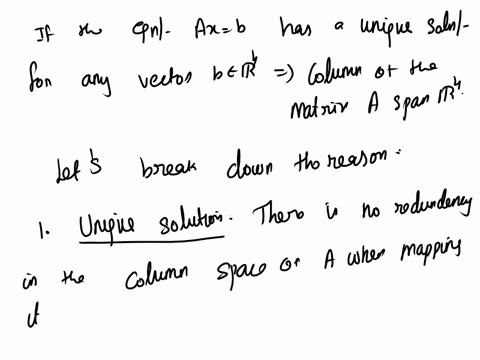 If the eqn/. Ax=b has a unique soln/.
for any vector b∈ℝ⁴ ⇒ column of the
matrix A span ℝ⁴.
Let's break down the reason.
1. Unique solution. There is no redundency
in the column space of A when mapping
it